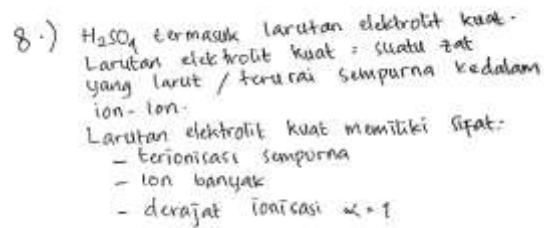 8.) H₂SO₄ termasuk larutan elektrolit kuat.
Larutan elektrolit kuat = suatu zat
yang larut / terurai sempurna kedalam
ion-ion.
Larutan elektrolit kuat memiliki sifat:
- terionisasi sempurna
- ion banyak
- derajat ionisasi α = 1